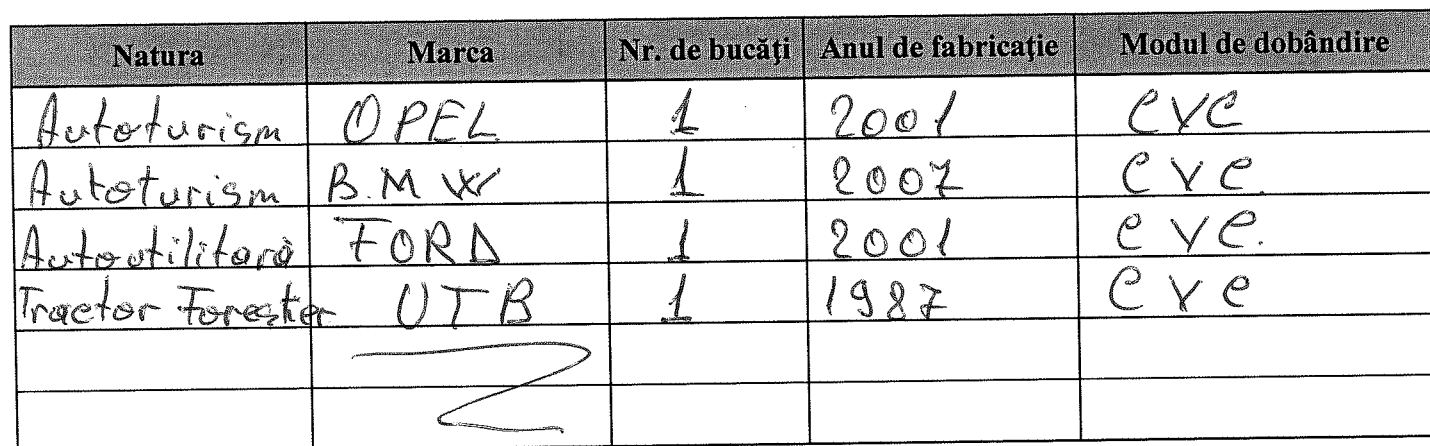 Natura Marca Nr. de bucăţi Anul de fabricaţie Modul de dobândire
Autoturism OPEL 1 2001 CVC
Autoturism B.M W 1 2007 CVC.
Autoutilitară FORD 1 2001 CVC.
Tractor Forester UTB 1 1987 CVC